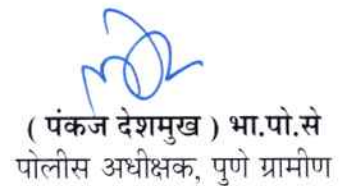 ( पंकज देशमुख ) भा.पो.से
पोलीस अधीक्षक, पुणे ग्रामीण